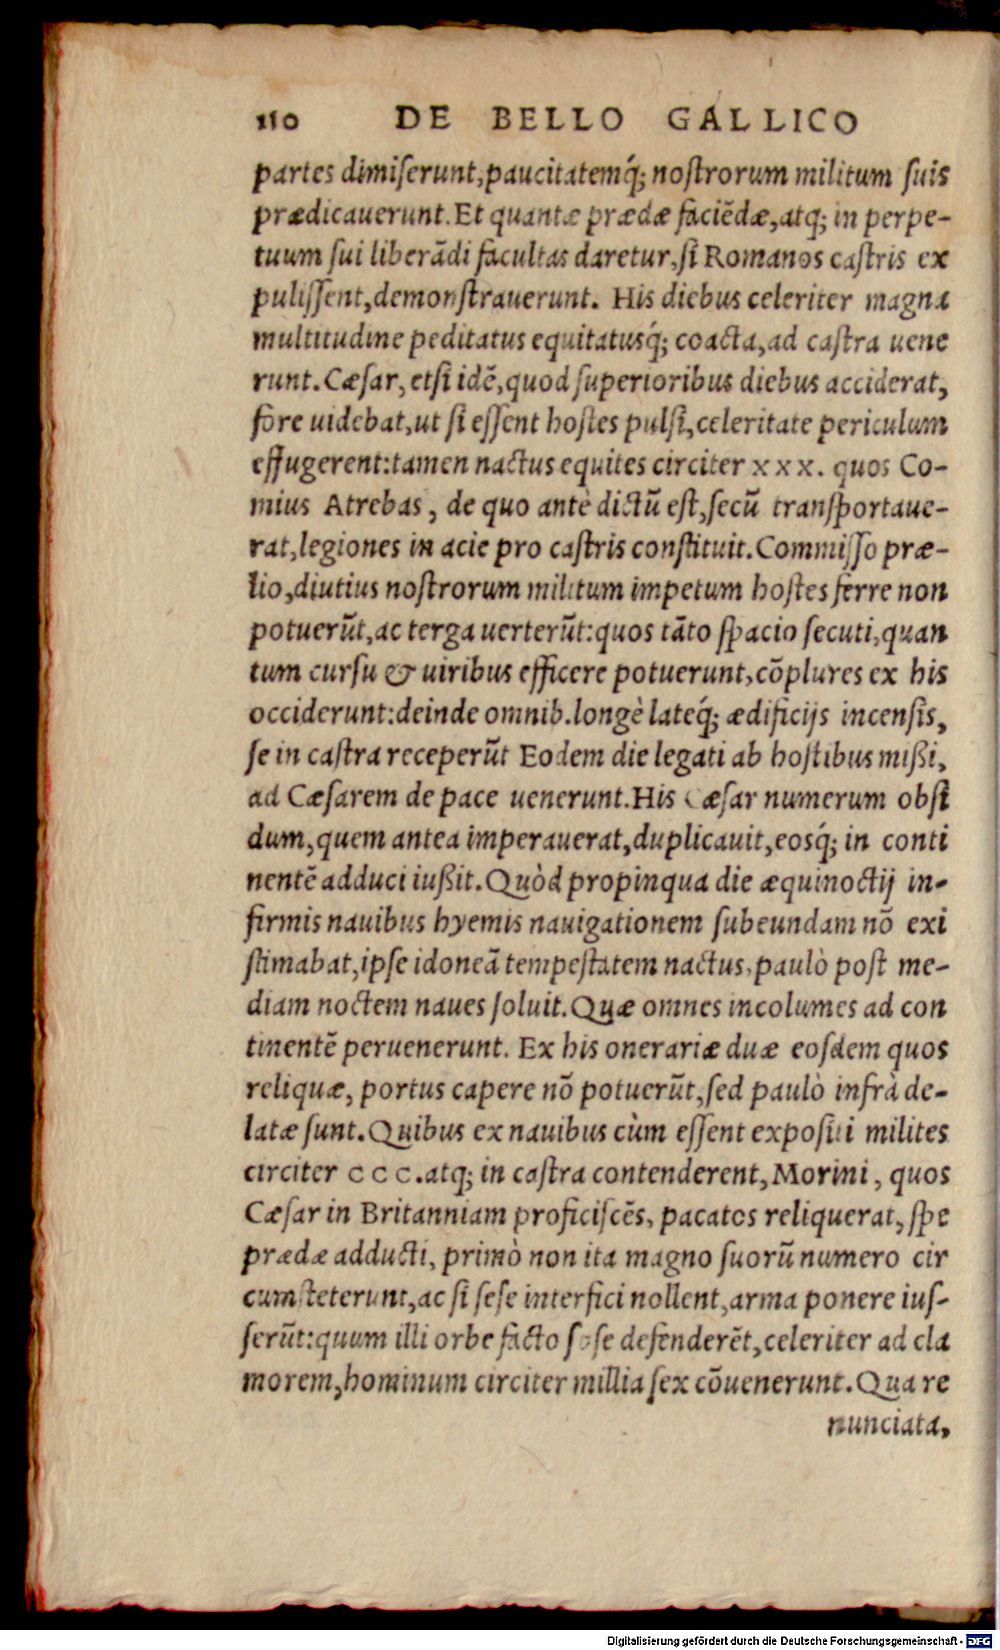 110 DE BELLO GALLICO
partes dimiſerunt,paucitatemq́; noſtrorum militum ſuis
prædicauerunt. Et quantæ prædæ faciẽdæ,atq; in perpe-
tuum ſui liberãdi facultas daretur,ſi Romanos caſtris ex
puliſſent,demonſtrauerunt. His diebus celeriter magna
multitudine peditatus equitatusq́; coacta,ad caſtra uene
runt. Cæſar, etſi idẽ,quod ſuperioribus diebus acciderat,
fore uidebat,ut ſi eſſent hoſtes pulſi,celeritate periculum
effugerent:tamen nactus equites circiter xxx. quos Co-
mius Atrebas, de quo antè dictũ eſt,ſecũ tranſportaue-
rat,legiones in acie pro caſtris conſtituit. Commiſſo præ-
lio,diutius noſtrorum militum impetum hoſtes ferre non
potuerũt,ac terga uerterũt:quos tãto ſpacio ſecuti,quan
tum curſu & uiribus efficere potuerunt,cõplures ex his
occiderunt:deinde omnib.longè lateq́; ædificijs incenſis,
ſe in caſtra receperũt Eodem die legati ab hoſtibus mißi,
ad Cæſarem de pace uenerunt. His Cæſar numerum obſi
dum,quem antea imperauerat,duplicauit,eosq́; in conti
nentẽ adduci iußit. Quòd propinqua die æquinoctij in-
firmis nauibus hyemis nauigationem ſubeundam nõ exi
ſtimabat,ipſe idoneã tempeſtatem nactus,paulò poſt me-
diam noctem naues ſoluit. Quæ omnes incolumes ad con
tinentẽ peruenerunt. Ex his onerariæ duæ eoſdem quos
reliquæ, portus capere nõ potuerũt,ſed paulò infrà de-
latæ ſunt. Quibus ex nauibus cùm eſſent expoſiti milites
circiter ccc.atq; in caſtra contenderent, Morini, quos
Cæſar in Britanniam proficiſcẽs, pacatos reliquerat, ſpe
prædæ adducti, primò non ita magno ſuorũ numero cir
cumſteterunt,ac ſi ſeſe interfici nollent,arma ponere iuſ-
ſerũt:quum illi orbe facto ſeſe defenderẽt,celeriter ad cla
morem,hominum circiter millia ſex cõuenerunt. Qua re
nunciata,
Digitalisierung gefördert durch die Deutsche Forschungsgemeinschaft - DFG